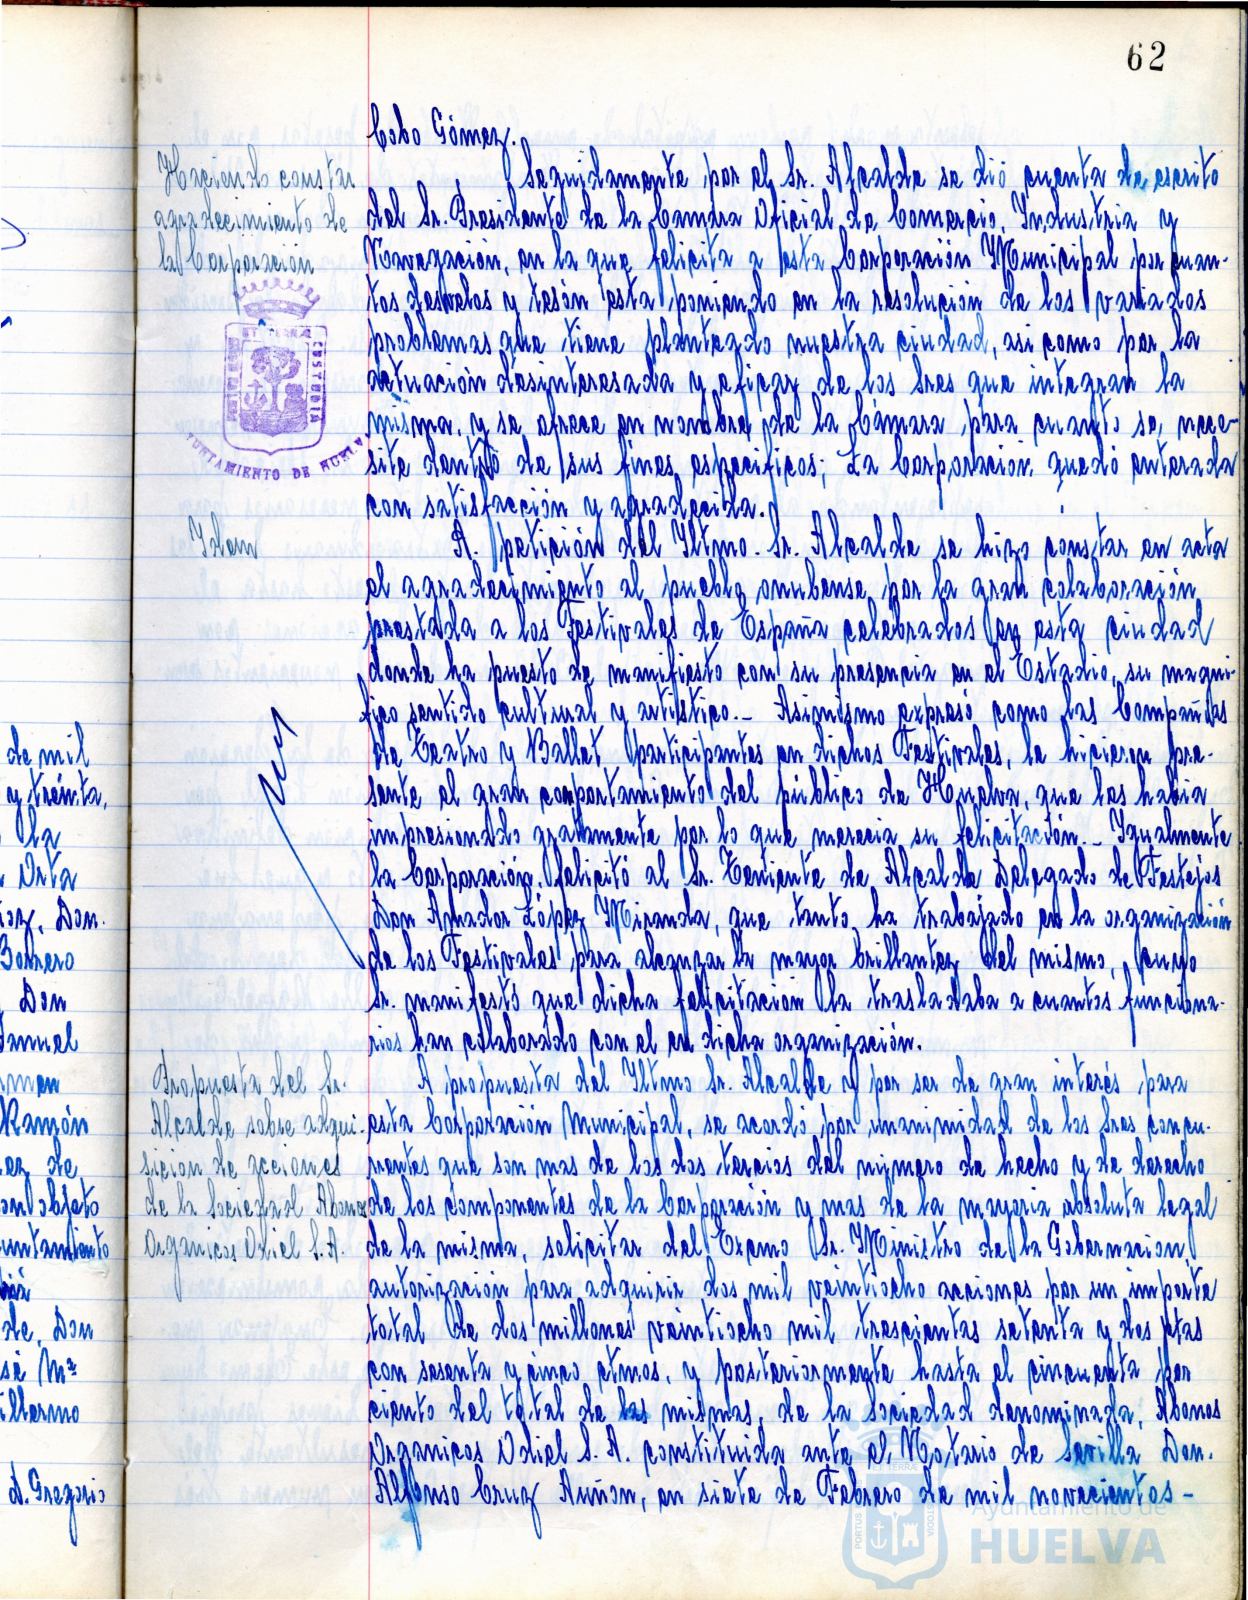 62
Cobo Gómez.
Haciendo constar
agradecimiento de
la Corporación
Seguidamente, por el Sr. Alcalde se dió cuenta de escrito
del Sr. Presidente de la Camara Oficial de Comercio, Industria y
Navegación, en la que felicita a esta Corporación Municipal por cuan-
tos desvelos y tesón esta poniendo en la resolución de los variados
problemas que tiene planteado nuestra ciudad, asi como por la
actuación desinteresada y eficaz de los Sres que integran la
misma, y se ofrece en nombre de la Cámara para cuanto se nece-
site dentro de sus fines especificos; La Corporación quedó enterada
con satisfacción y agradecida.
AYUNTAMIENTO DE HUELVA
Idem
A petición del Iltmo. Sr. Alcalde se hizo constar en acta
el agradecimiento al pueblo onubense por la gran colaboración
prestada a los Festivales de España celebrados en esta ciudad
donde ha puesto de manifiesto con su presencia en el Estadio, su magni-
fico sentido cultural y artistico.- Asimismo expresó como las Compañias
de Teatro y Ballet participantes en dichos Festivales, le hicieron pre-
sente el gran comportamiento del público de Huelva, que les habia
impresionado gratamente por lo que merecia su felicitación.- Igualmente
la Corporación, felicitó al Sr. Teniente de Alcalde Delegado de Festejos
Don Amador López Miranda, que tanto ha trabajado en la organización
de los Festivales para alcanzar la mayor brillantez del mismo, cuyo
Sr. manifestó que dicha felicitación la trasladaba a cuantos funciona-
rios han colaborado con el en dicha organización.
Propuesta del Sr.
Alcalde sobre adqui-
sición de acciones
de la Sociedad Abonos
Organicos Odiel S.A.
A propuesta del Iltmo Sr. Alcalde y por ser de gran interés para
esta Corporación Municipal, se acordó por unanimidad de los Sres concu-
rrentes que son mas de los dos tercios del número de hecho y de derecho
de los componentes de la Corporación y mas de la mayoria absoluta legal
de la misma, solicitar del Excmo Sr. Ministro de la Gobernacion
autorización para adquirir dos mil veintiocho acciones por un importe
total de dos millones veintiocho mil trescientas setenta y dos ptas
con sesenta y cinco ctmos, y posteriormente hasta el cincuenta por
ciento del total de las mismas, de la sociedad denominada, Abonos
Organicos Odiel S.A. constituida ante el Notario de Sevilla Don.
Alfonso Cruz Auñon, en siete de Febrero de mil novecientos-
de mil
y treinta,
la
Orta
Don.
Borrero
Don
Manuel
Ramón
ez de
con objeto
untamiento
de, Don
sé Mª
illermo
D. Gregorio
Ayuntamiento de
HUELVA